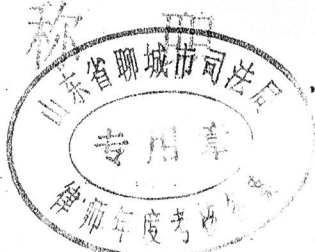 称 职
山东省聊城市司法局
专用章
律师年度考核备案